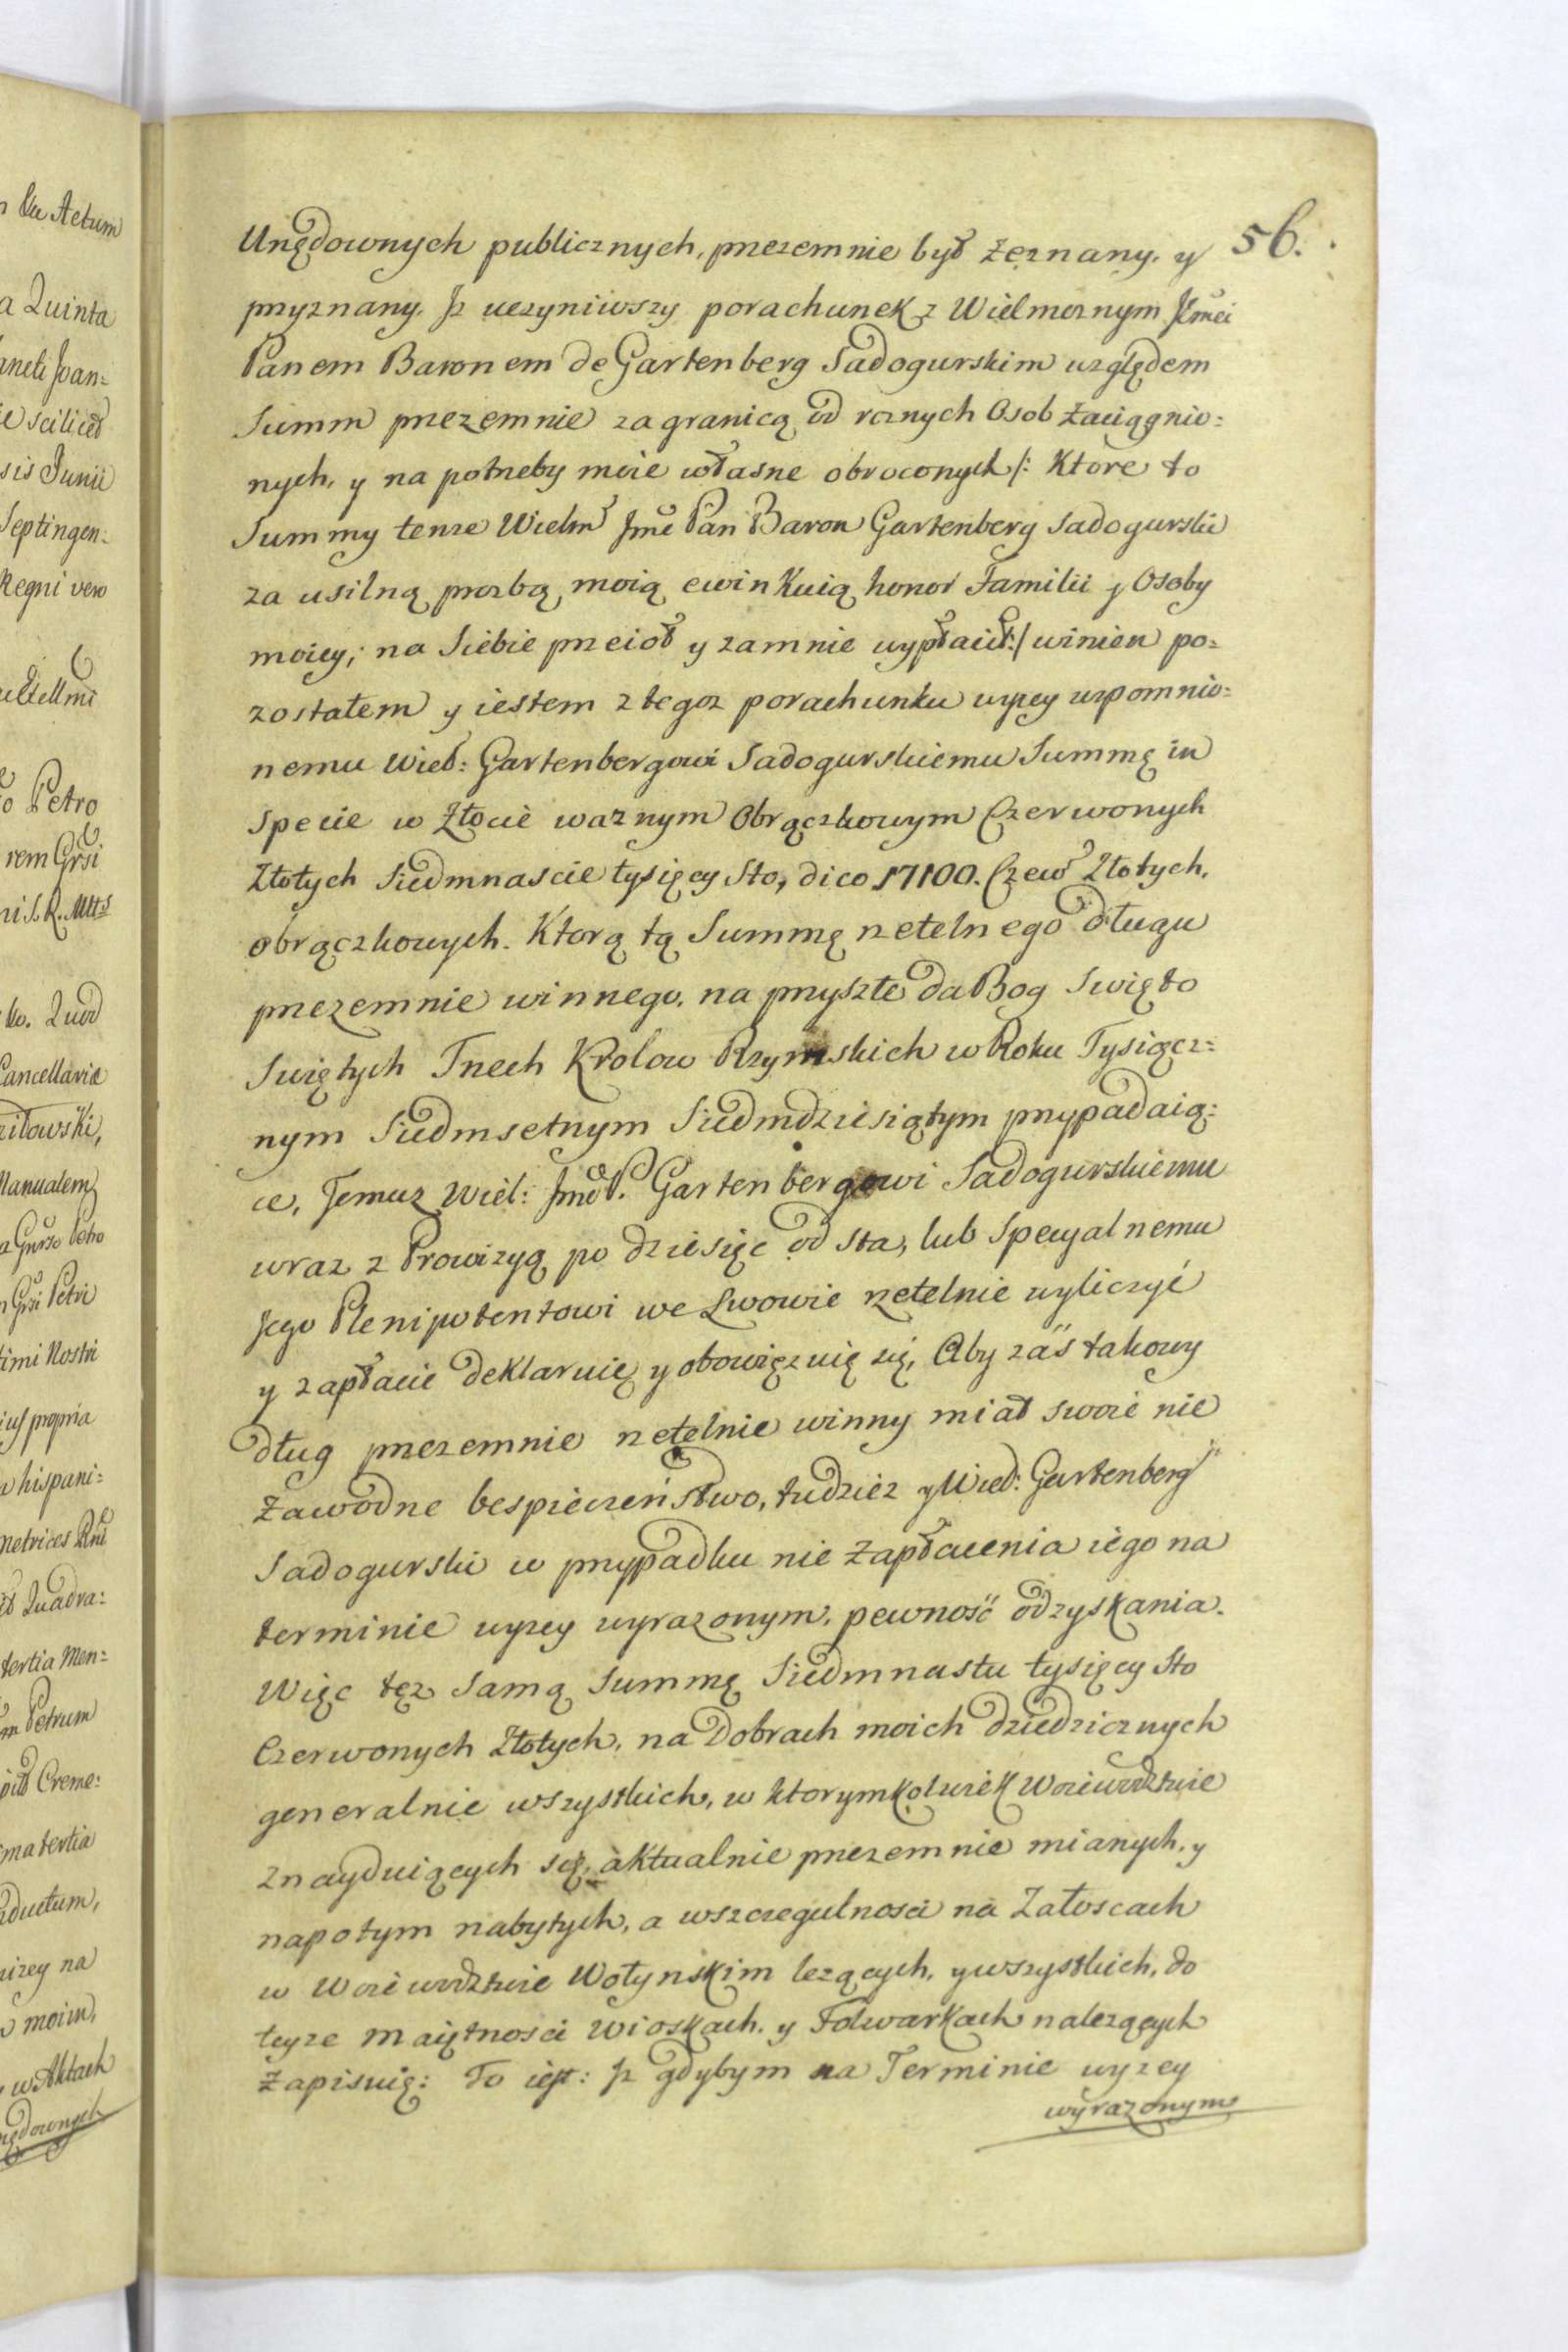 n Ua Actum
a Quinta
ancti Joan=
ie scilicet
sis Junii
Septingen=
Regni vero
o Petro
rem Grsi
ni S. R. Mtts
ko. Quod
Cancellariæ
ziłowski,
Manualem
a Gnrso Petro
n Grsi Petri
timi Nostri
ius propria
a hispani=
metrices Rni
Quadra=
tertia Men=
m Petrum
pit Creme:
ma tertia
ductum,
niżey na
w moim,
w Aktach
zędownych
56.
Urzędownych publicznych, przezemnie był zeznany, y
przyznany. Jz uczyniwszy porachunek z Wielmoznym Jchmci
Panem Baronem de Gartenberg Sadogurskim względem
Summ przezemnie za granicą od roznych Osob zaciągnio=
nych, y na potrzeby moie własne obroconych /: Ktore to
Summy tenze Wielm Jmć Pan Baron Gartenberg Sadogurski
za usilną prozbą moią ewinkuią honor Familii y Osoby
moiey, na siebie przeioł y zamnie wypłacił :/ winien po=
zostałem y iestem z tegoz porachunku wyzey wspomnio=
nemu Wiel: Gartenbergowi Sadogurskiemu Summę in
Specie w Złocie waznym Obrączkowym Czerwonych
Złotych Siedmnascie tysięcy Sto, dico 17100. Czerw Złotych,
obrączkowych. Ktorą tą Summę rzetelnego długu
przezemnie winnego, na przyszłe da Bog Swięto
Swiętych Trzech Krolow Rzymskich w Roku Tysiącz=
nym Siedmsetnym Siedmdziesiątym przypadaią=
ce, Temuz Wiel: Jmć P. Gartenbergowi Sadogurskiemu
wraz z Prowizyą po dziesięc od sta, lub Specyalnemu
Jego Plenipotentowi we Lwowie rzetelnie wyliczyć
y zapłacic deklaruię y obowięzuię się, Aby zaś takowy
dług przezemnie rzetelnie winny miał swoie nie
zawodne bespieczeństwo, tudziez y Wiel: Gartenberg
Sadogurski w przypadku nie zapłacenia iego na
terminie wyzey wyrazonym, pewność odzyskania.
Więc tęz samą Summę Siedmnastu tysięcy Sto
Czerwonych Złotych, na Dobrach moich dziedzicznych
generalnie wszystkich, w ktorymkolwiek Woiewodztwie
znayduiących się, aktualnie przezemnie mianych, y
napotym nabytych, a wszczegulnosci na Załoscach
w Woiewodztwie Wołyńskim lezących, y wszystkich, do
teyze maiętnosci Wioskach, y Folwarkach nalezących
zapisuię: To iest: Jz gdybym na Terminie wyzey
wyrazonym